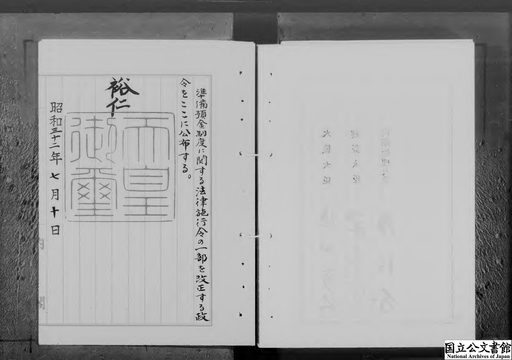 準備預金制度に関する法律施行令の一部を改正する政
令をここに公布する。
裕仁
天皇
御璽
昭和三十二年七月十日
国立公文書館
National Archives of Japan